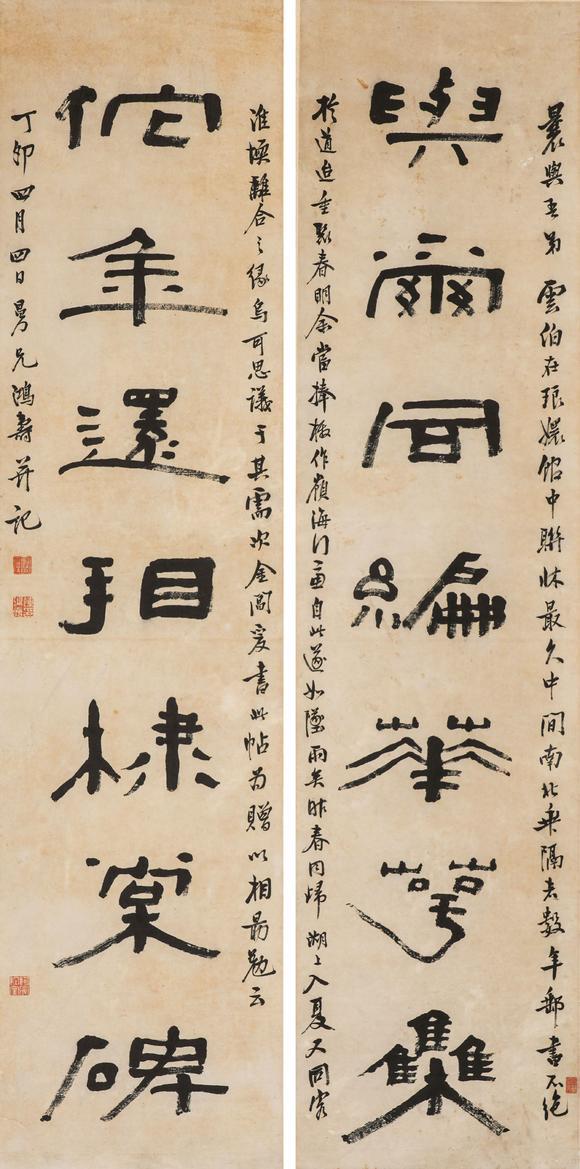 曩與吾弟雲伯在琅嬛館中聯牀最久中間南北乖隔者數年郵書不絕
與爾同編華萼集
於道迨重聚春明余當捧檄作嶺海行一面自此遂如墜雨矣昨春同歸湖上入夏又同客
淮壖離合之緣烏可思議于其需次金閶爰書此帖為贈以相勗勉云
佗年還看棣棠碑
丁卯四月四日曼兄鴻壽并記